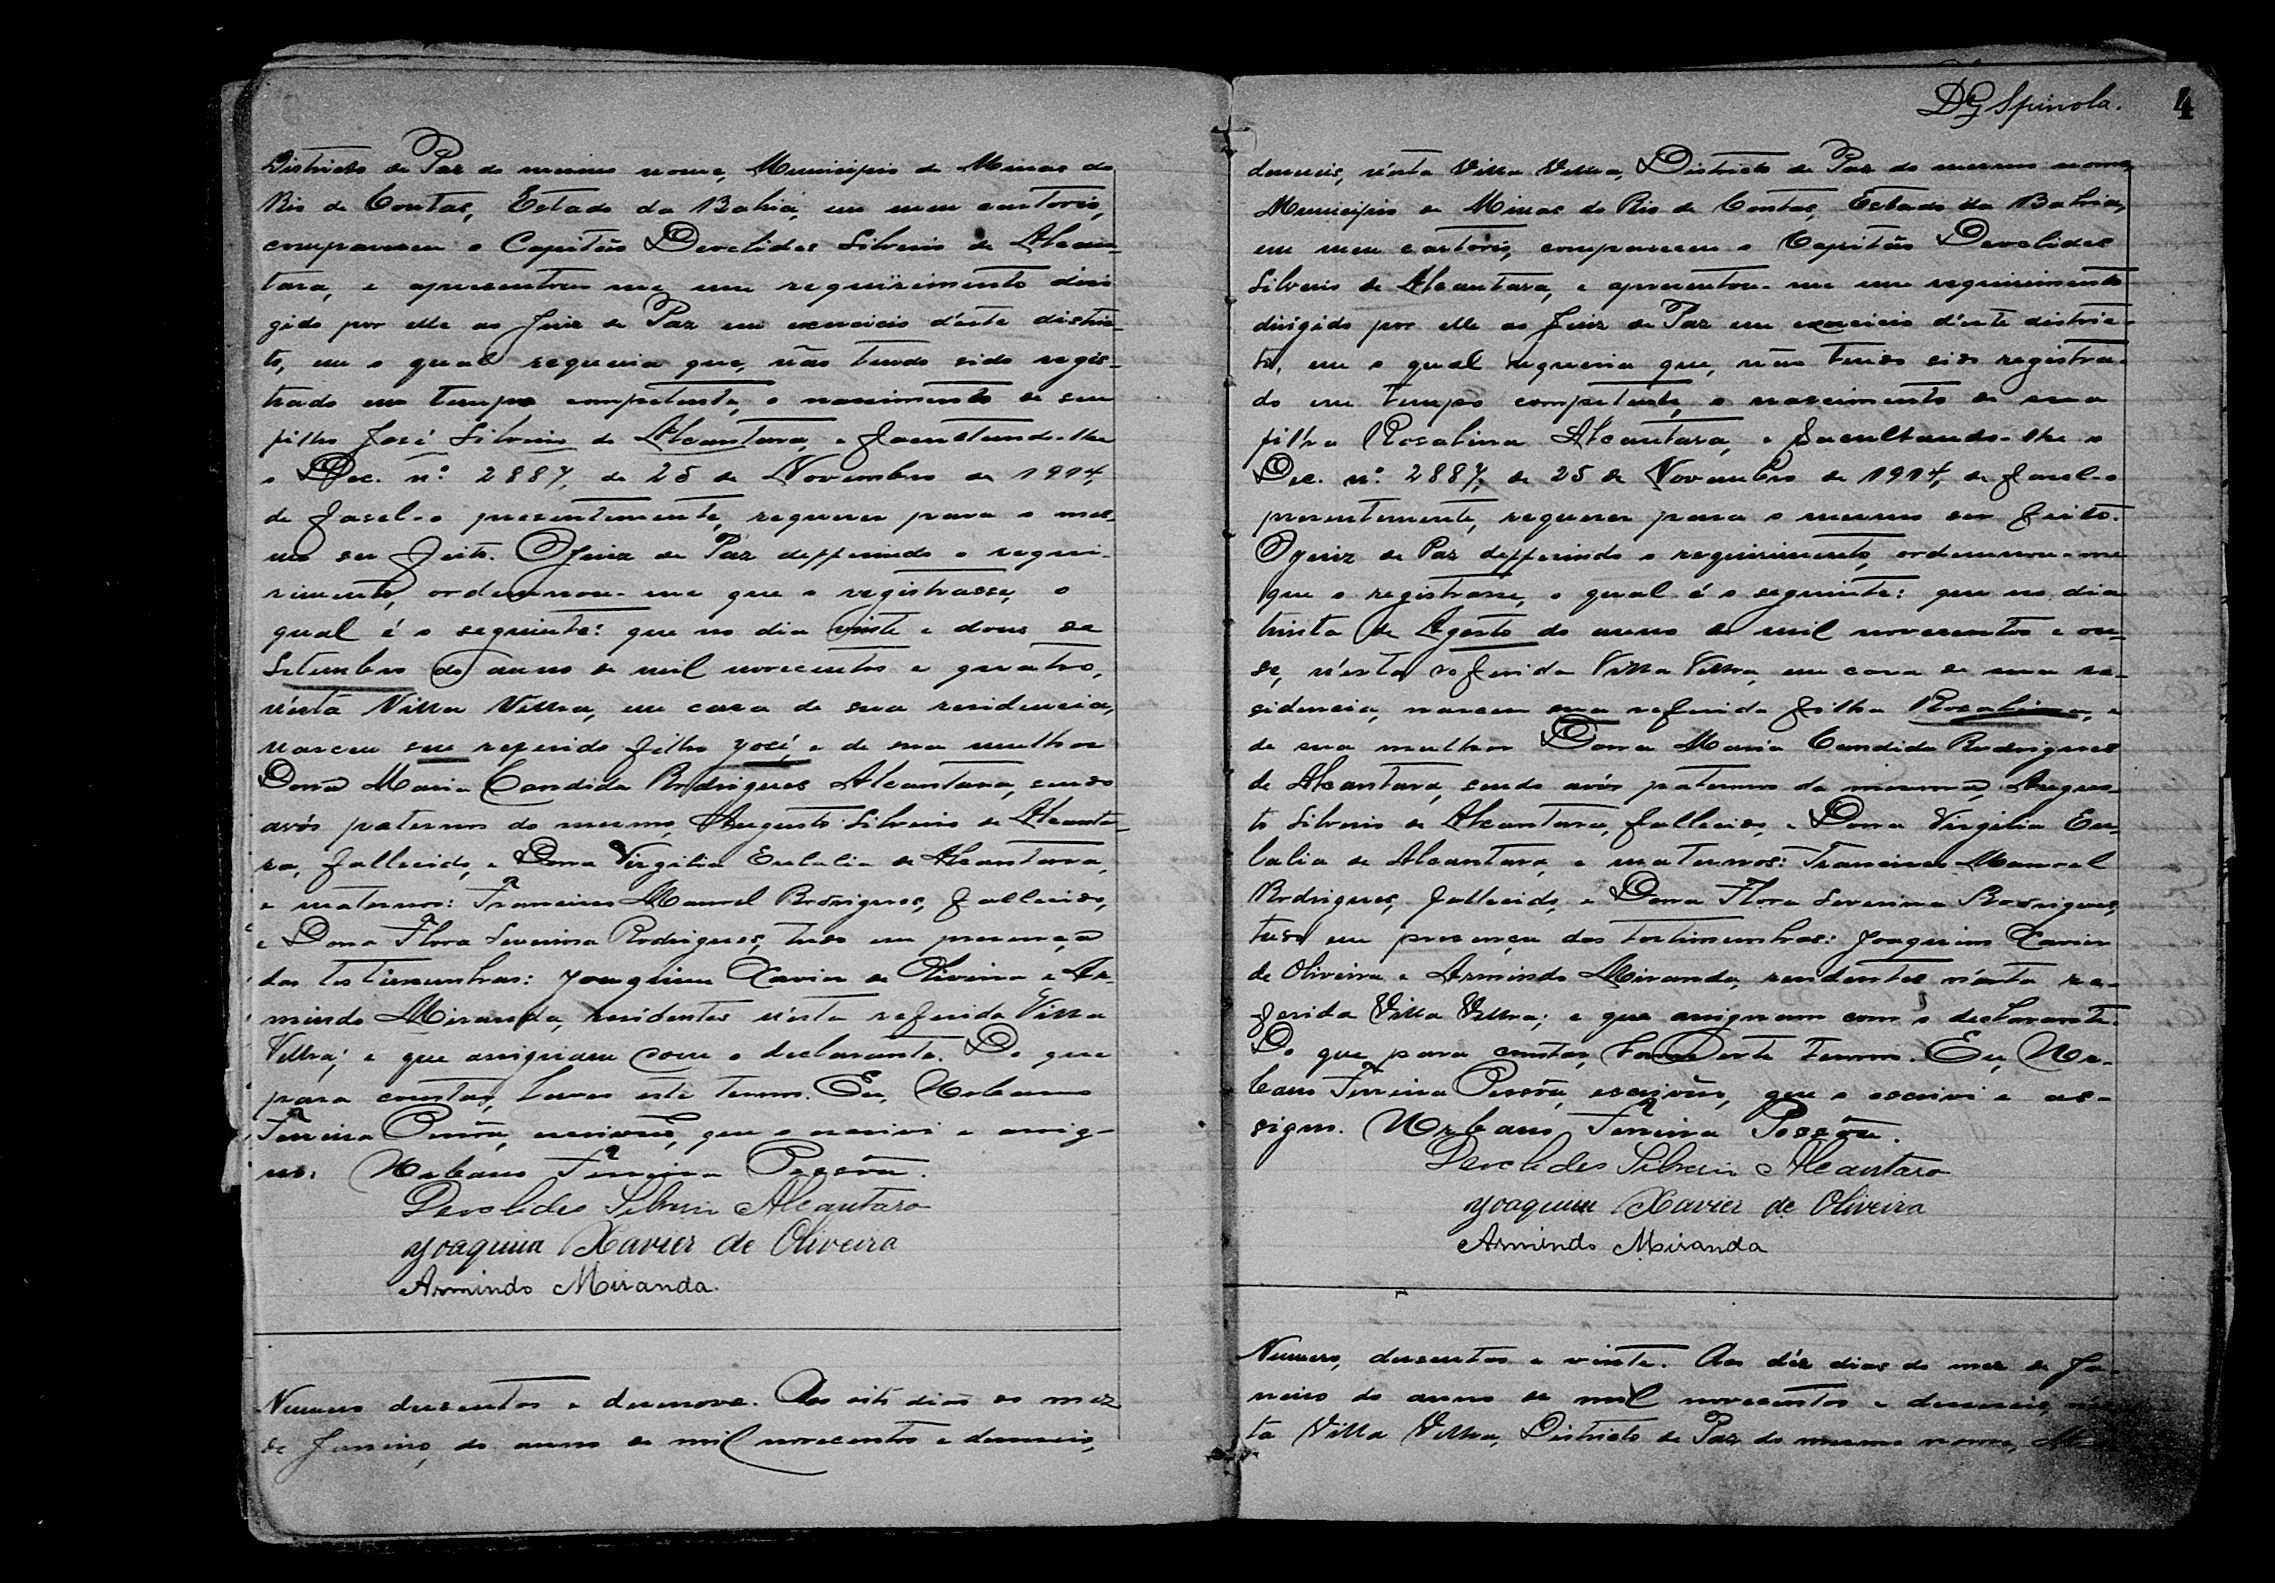 Districto de Paz do mesmo nome, Municipio de Minas do
Rio de Contas, Estado da Bahia, em meu cartorio,
compareceu o Capitão Deoclides Silverio de Alcan-
tara, e apresentou me um requirimento diri
gido por elle ao Juiz de Paz em exercicio d'este distric-
to, em o qual requeria que, não tendo sido regis-
trado em tempo competente, o nascimento de seu
filho José Silverio de Alcantara, e facultando-lhe
o Dec. nº 2887, de 25 de Novembro de 1914,
de fasel-o presentemente, requerer para o mes-
mo ser feito. O Juiz de Paz defferindo o requi-
rimento, ordennou-me que o registrasse, o
qual é o seguinte: que no dia vinte e dous de
Setembro do anno de mil novecentos e quatro,
n'esta Villa Velha, em casa de sua residencia,
nasceu seu referido filho José, e de sua mulher
Dona Maria Candida Rodrigues Alcantara, sendo
avós paternos do mesmo, Augusto Silverio de Alcanta-
ra, fallecido, e Dona Virgilia Eulalia de Alcantara,
e maternos: Francisco Manoel Rodrigues, fallecido,
e Dona Flora Severina Rodrigues, tudo em presença
das testimunhas: Joaquim Xavier de Oliveira e Ar-
mindo Miranda, residentes n'esta referida Villa
Velha; e que assignam com o declarante. Do que
para constar, lavrei este termo. Eu, Urbano
Ferreira Pessôa, escrivão, que o escrivi e assig-
no. Urbano Ferreira Pessôa.
Deoclides Silverio Alcantara
Joaquim Xavier de Oliveira
Armindo Miranda.
Numero dusentos e desenove. Aos oito dias do mez
de Janeiro, do anno de mil novecentos e deseseis,
DG Spinola.
4
deseseis, n'esta Villa Velha, Districto de Paz do mesmo nome,
Municipio de Minas do Rio de Contas, Estado da Bahia,
em meu cartorio, compareceu o Capitão Deoclides
Silverio de Alcantara, e apresentou-me um requirimento
dirigido por elle ao Juiz de Paz em exercicio d'este distric-
to, em o qual requeria que, não tendo sido registra-
do em tempo competente, o nascimento de sua
filha Rosalina Alcantara, e facultando-lhe o
Dec. nº 2887, de 25 de Novembro de 1914, de fasel-o
presentemente, requerer para o mesmo ser feito.
O Juiz de Paz defferindo o requirimento, ordennou-me
que o registrasse, o qual é o seguinte: que no dia
trinta de Agosto do anno de mil novecentos e on-
se, n'esta referida Villa Velha, em casa de sua re-
sidencia, nasceu sua referida filha Rosalina, e
de sua mulher Dona Maria Candida Rodrigues
de Alcantara, sendo avós paternos da mesma, Augus-
to Silverio de Alcantara, fallecido, e Dona Virgilia Eu-
lalia de Alcantara, e maternos: Francisco Manoel
Rodrigues, fallecido, e Dona Flora Severina Rodrigues,
tudo em presença das testimunhas: Joaquim Xavier
de Oliveira e Armindo Miranda, residentes n'esta re-
ferida Villa Velha; e que assignam com o declarante.
Do que para constar, lavrei este termo. Eu, Ur-
bano Ferreira Pessôa, escrivão, que o escrivi e as-
signo. Urbano Ferreira Pessôa.
Deoclides Silverio Alcantara
Joaquim Xavier de Oliveira
Armindo Miranda
Numero, dusentos e vinte. Aos déz dias do mez de Ja-
neiro do anno de mil novecentos e deseseis,
ta Villa Velha, Districto de Paz do mesmo nome,